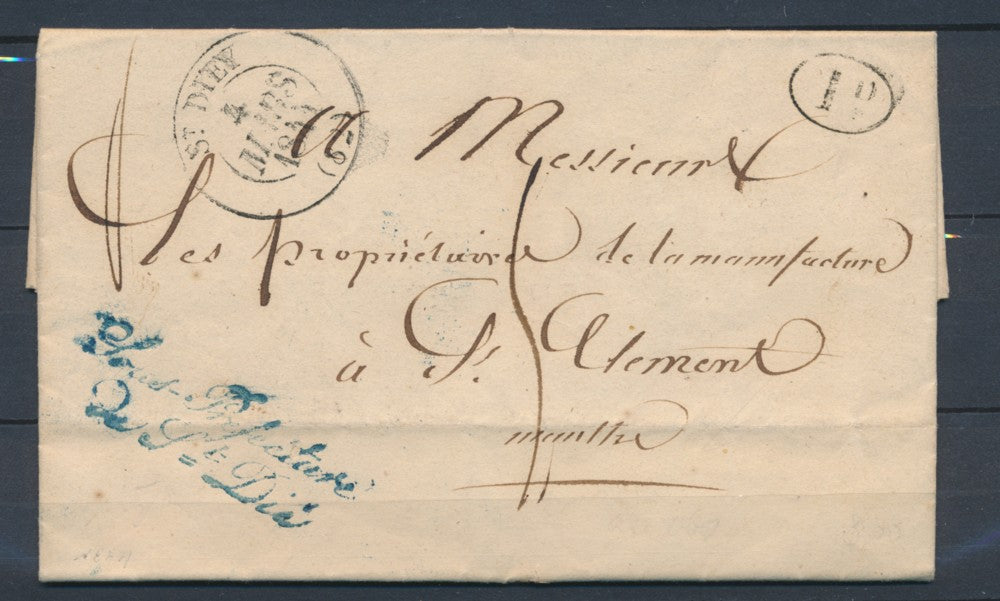 ST DIEY
4
MARS
(82)
1 D
A Messieurs
Les propriétaires de la manufacture
à St. Clement
Sous-Préfecture
de St. Dié